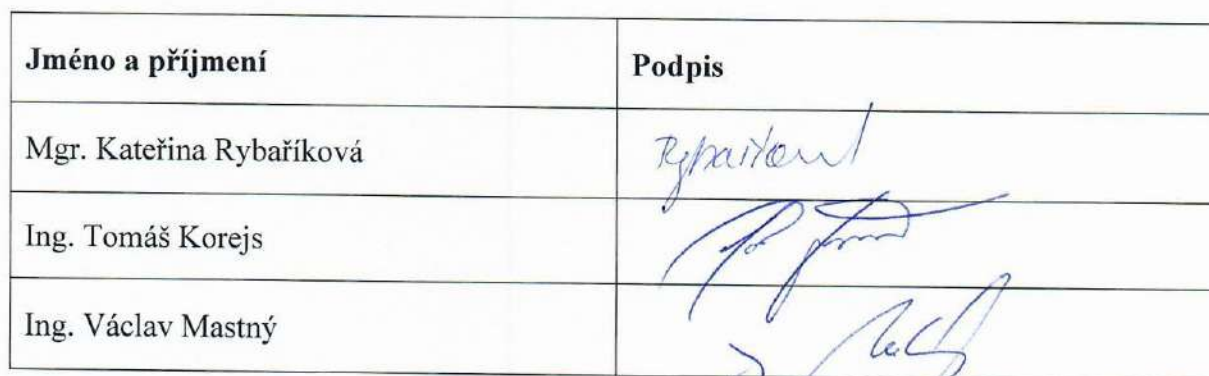 Jméno a příjmení Podpis
Mgr. Kateřina Rybaříková
Ing. Tomáš Korejs
Ing. Václav Mastný